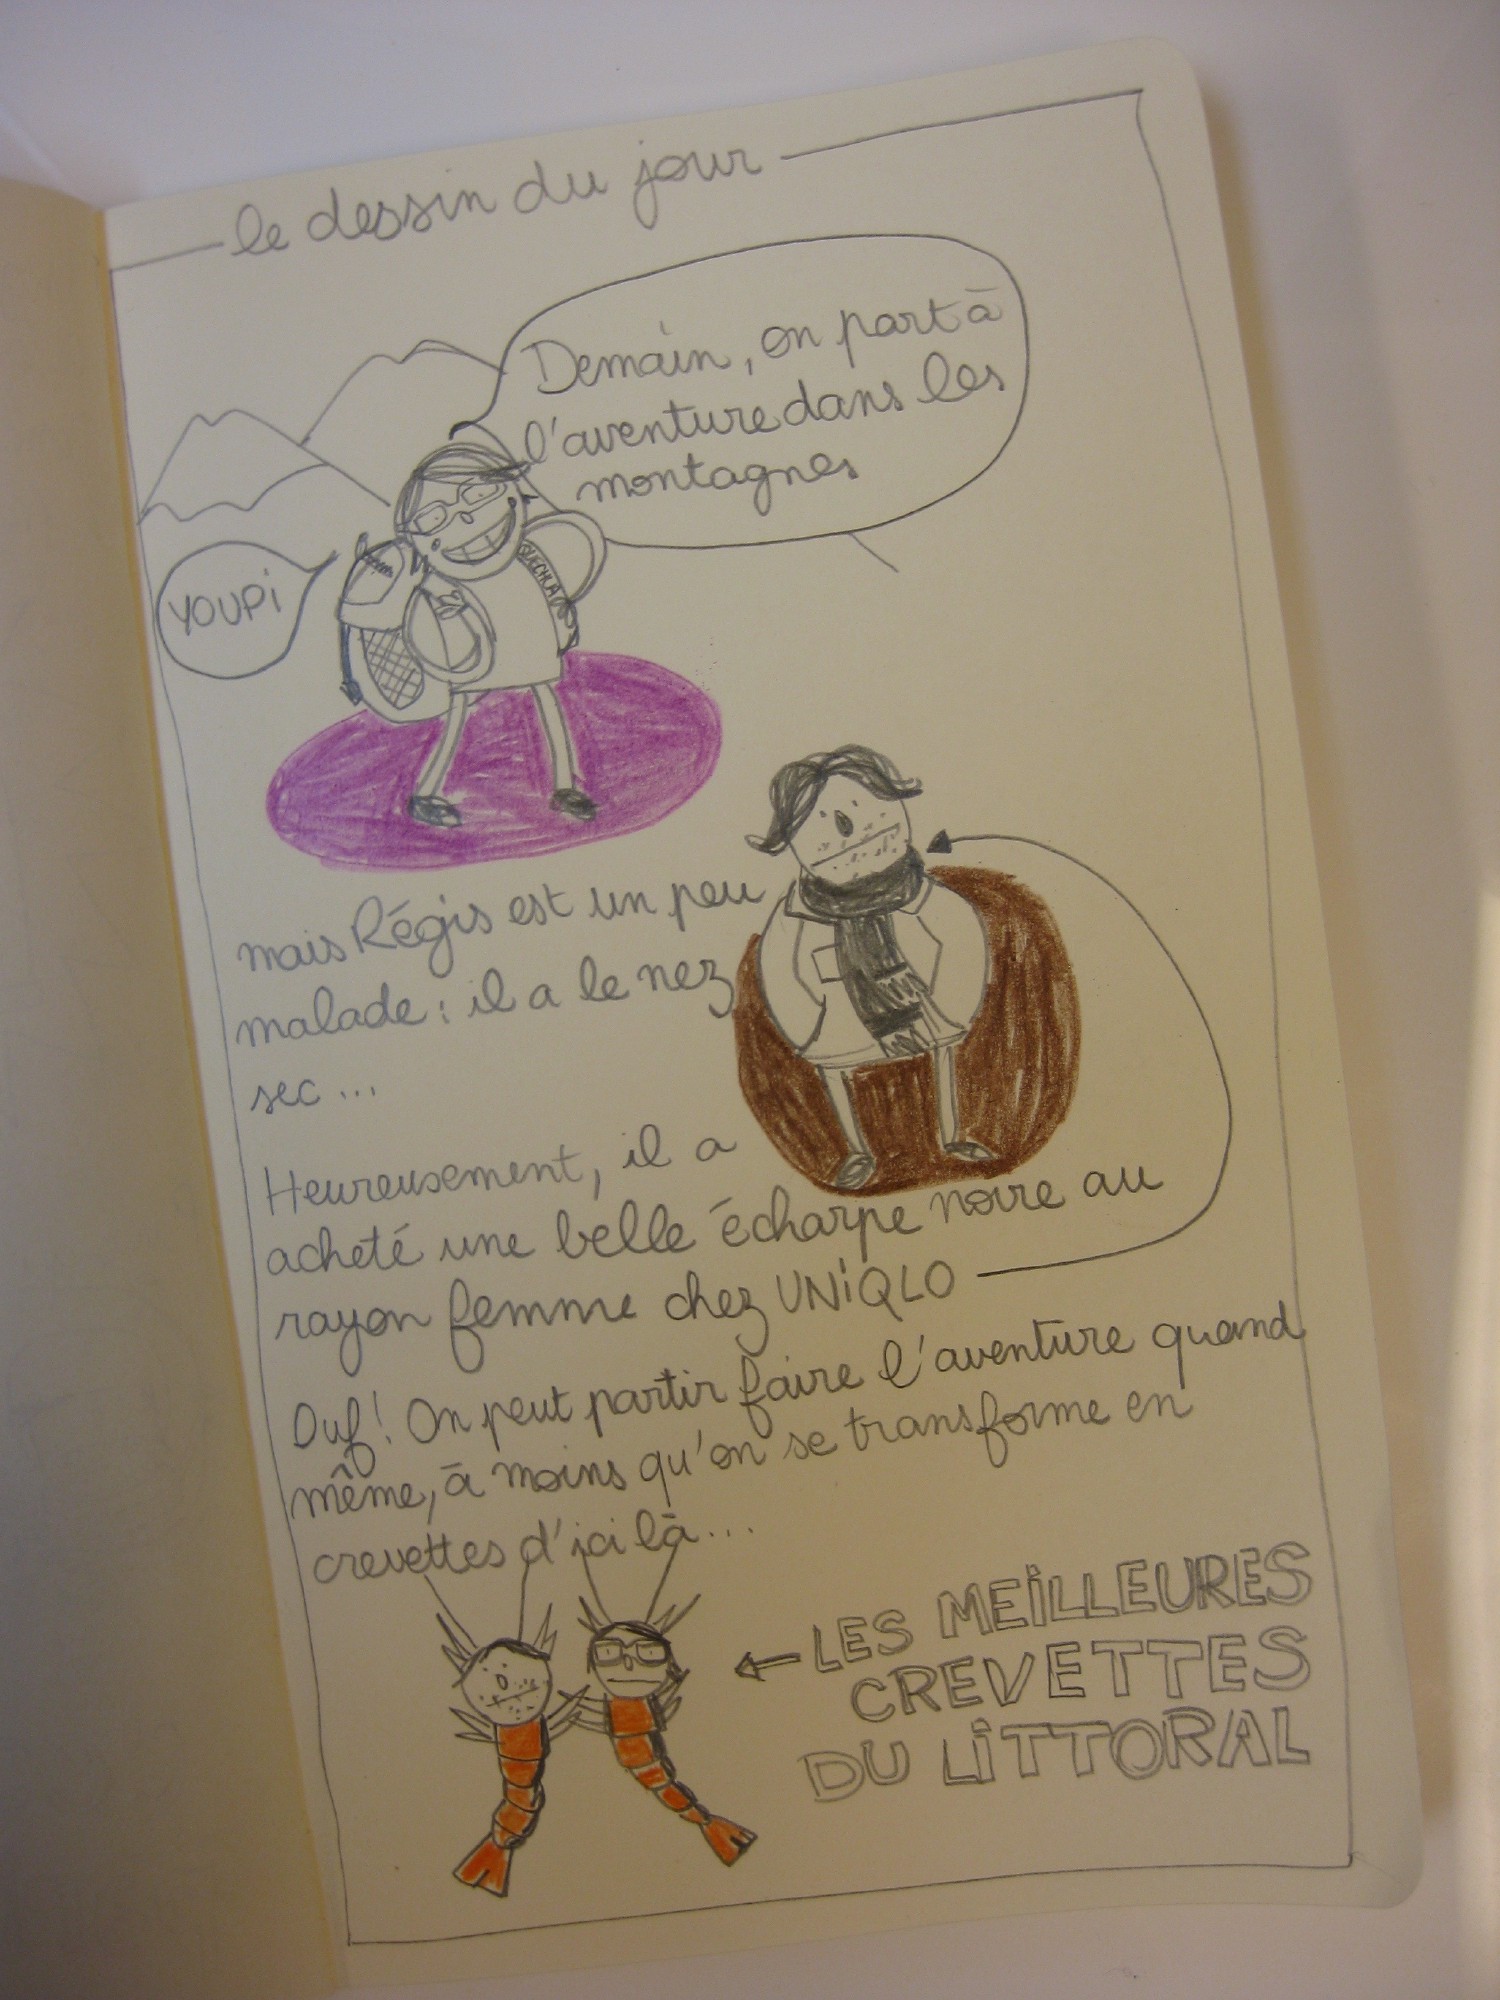 le dessin du jour
Demain, on part à
l'aventure dans les
montagnes
YOUPi
QUECHUA
mais Régis est un peu
malade : il a le nez
sec ...
Heureusement, il a
acheté une belle écharpe noire au
rayon femme chez UNiQLO
Ouf! On peut partir faire l'aventure quand
même, à moins qu'on se transforme en
crevettes d'ici là...
LES MEiLLEURES
CREVETTES
DU LiTTORAL